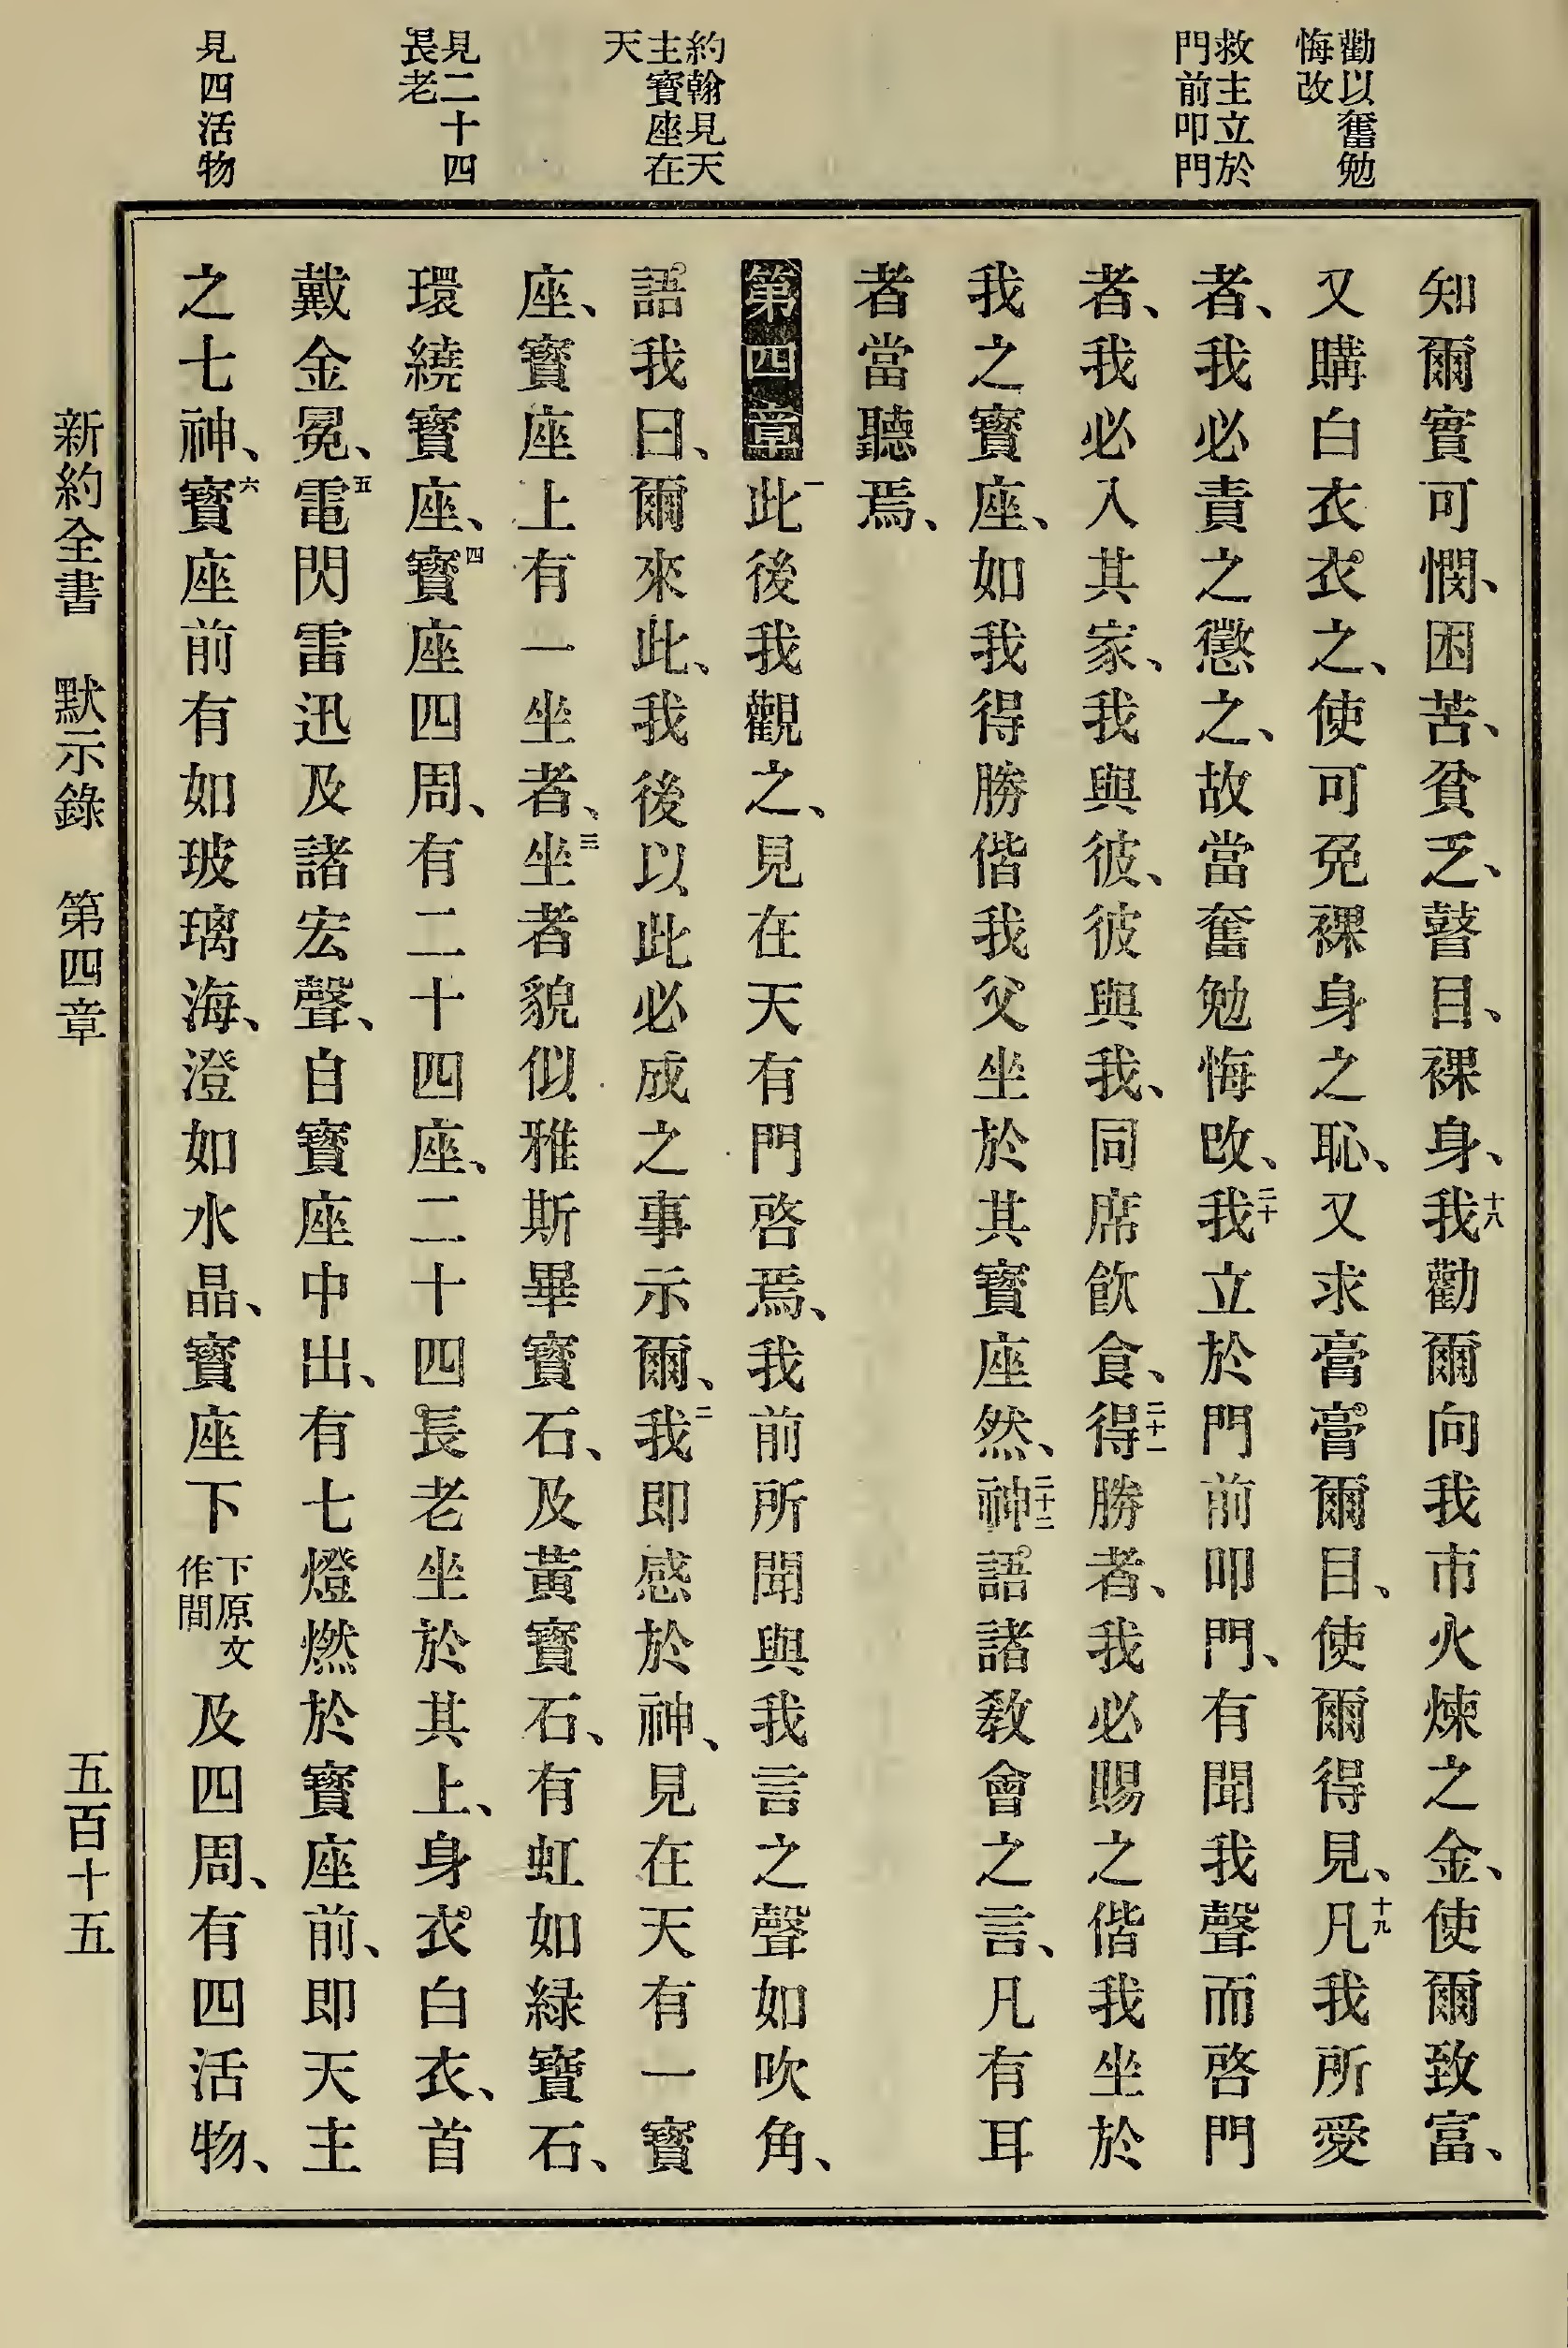 勸以奮勉
悔改
救主立於
門前叩門
約翰見天
主寳座在
天
見二十四
長老
見四活物
知爾實可憫、困苦、貧乏、瞽目、裸身、十八我勸爾向我市火煉之金、使爾致富、
又購白衣衣之、使可免裸身之恥、又求膏膏爾目、使爾得見、十九凡我所愛
者、我必責之懲之、故當奮勉悔改、二十我立於門前叩門、有聞我聲而啓門
者、我必入其家、我與彼、彼與我、同席飲食、二十一得勝者、我必賜之偕我坐於
我之寳座、如我得勝偕我父坐於其寳座然、二十二神語諸教會之言、凡有耳
者當聽焉、
第四章一此後我觀之、見在天有門啓焉、我前所聞與我言之聲如吹角、
語我曰、爾來此、我後以此必成之事示爾、二我即感於神、見在天有一寳
座、寳座上有一坐者、三坐者貌似雅斯畢寳石、及黃寳石、有虹如緑寳石、
環繞寳座、四寳座四周、有二十四座、二十四長老坐於其上、身衣白衣、首
戴金冕、五電閃雷迅及諸宏聲、自寳座中出、有七燈燃於寳座前、即天主
之七神、六寳座前有如玻璃海、澄如水晶、寳座下下原文作間及四周、有四活物、
新約全書 默示錄 第四章 五百十五